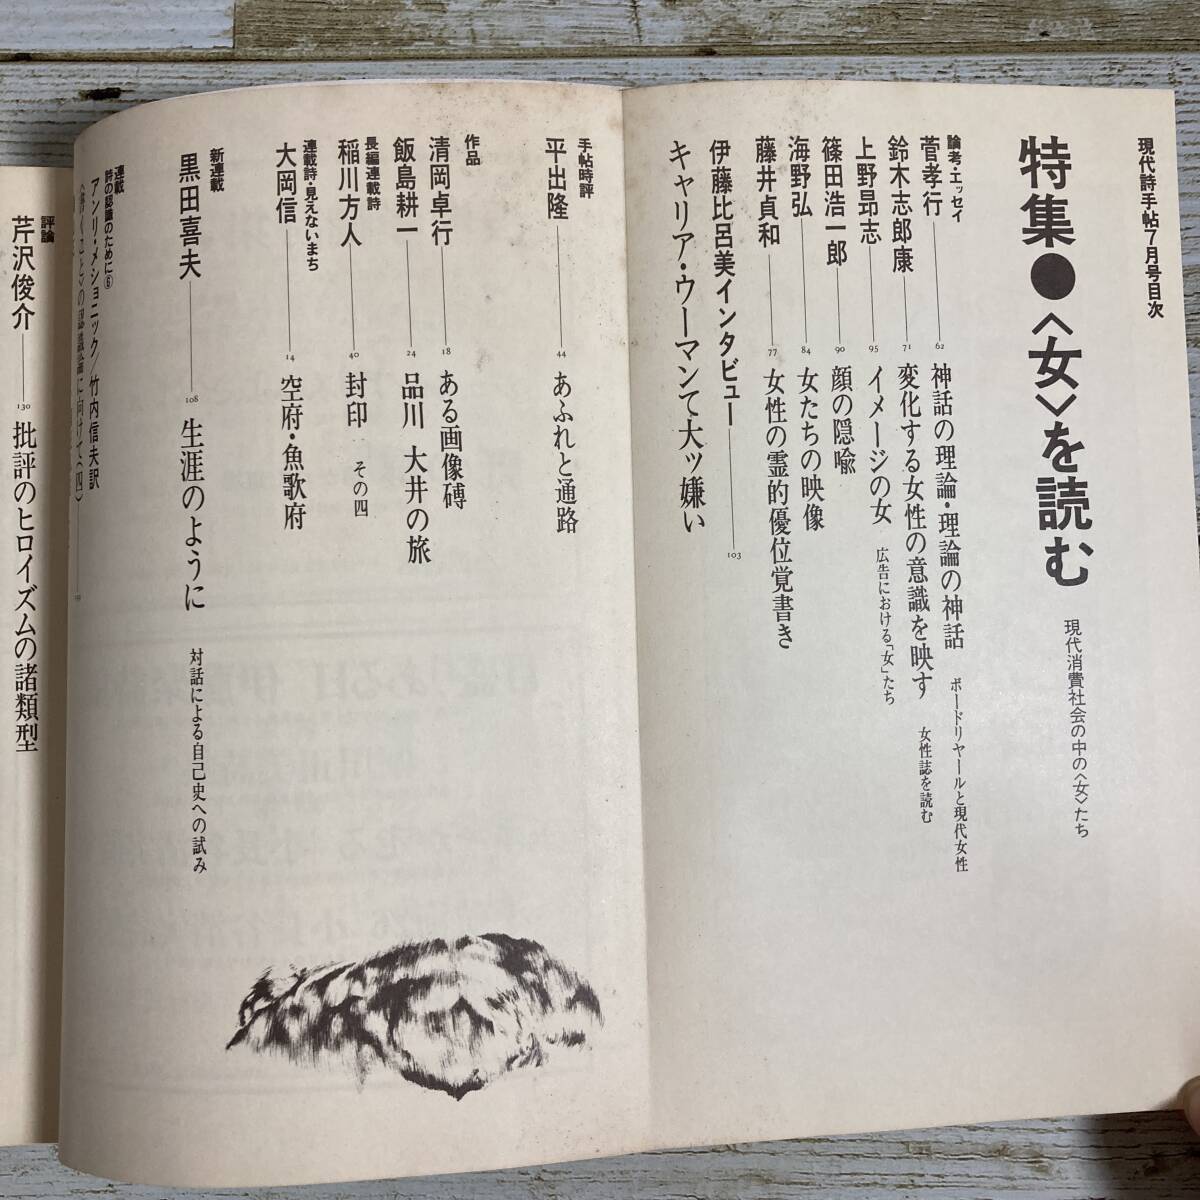 現代詩手帖7月号目次
特集●〈女〉を読む 現代消費社会の中の〈女〉たち
論考・エッセイ
菅孝行 62 神話の理論・理論の神話 ボードリヤールと現代女性
鈴木志郎康 71 変化する女性の意識を映す 女性誌を読む
上野昻志 95 イメージの女 広告における「女」たち
篠田浩一郎 90 顔の隠喩
海野弘 84 女たちの映像
藤井貞和 77 女性の霊的優位覚書き
伊藤比呂美インタビュー 103
キャリア・ウーマンて大ッ嫌い
手帖時評
平出隆 44 あふれと通路
作品
清岡卓行 18 ある画像磚
飯島耕一 24 品川 大井の旅
長編連載詩
稲川方人 40 封印 その四
連載詩・見えないまち
大岡信 14 空府・魚歌府
新連載
黒田喜夫 108 生涯のように 対話による自己史への試み
連載
詩の認識のために⑥
アンリ・メショニック/竹内信夫訳
〈書くこと〉の認識論に向けて(四)
評論
芹沢俊介 130 批評のヒロイズムの諸類型